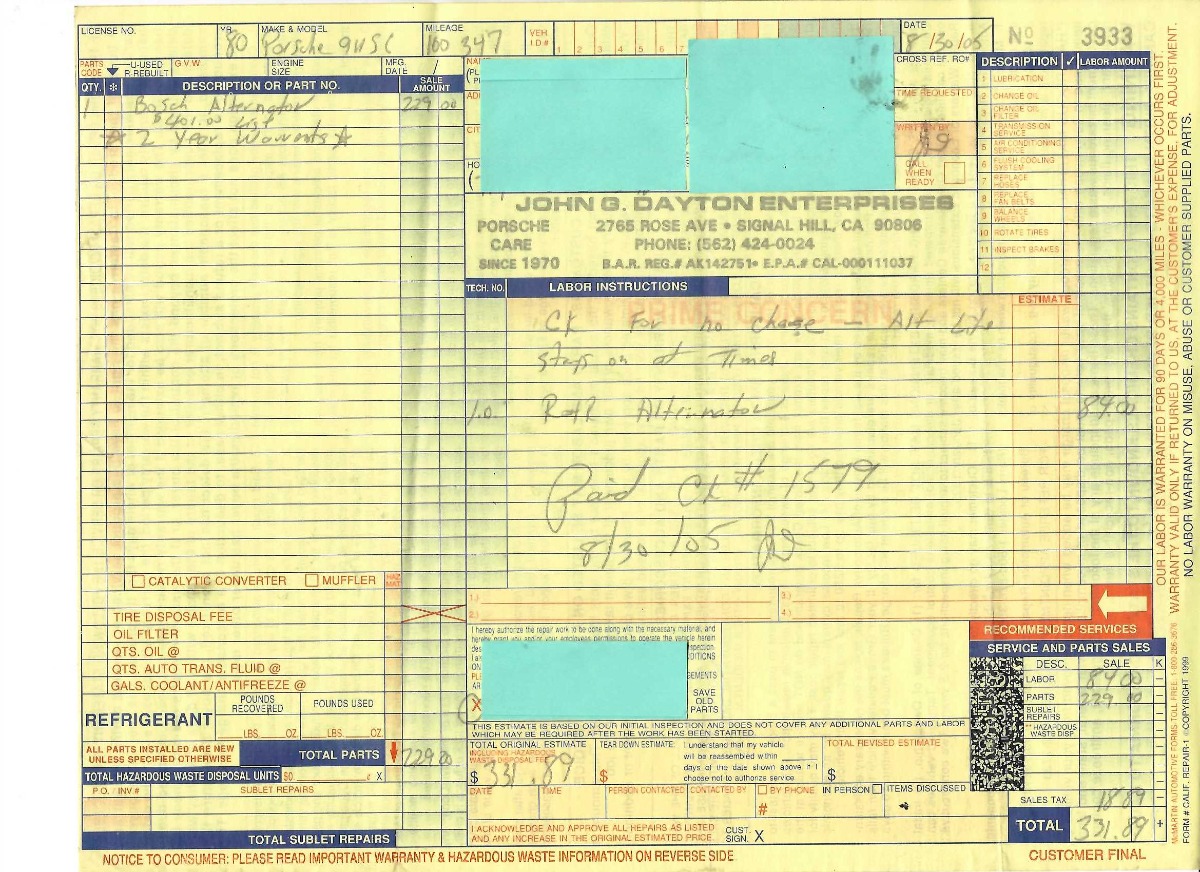 LICENSE NO.
YR. 80
MAKE & MODEL Porsche 911SC
MILEAGE 160 347
VEH. I.D.# 1 2 3 4 5 6 7
DATE 8/30/05
Nº 3933
PARTS CODE
U-USED
R-REBUILT
G.V.W
ENGINE SIZE
MFG. DATE
QTY. * DESCRIPTION OR PART NO. SALE AMOUNT
1 Bosch Alternator 229 00
$401.00 List
☆ 2 Year Warranty ☆
CROSS REF. RO#
TIME REQUESTED
WRITTEN BY JD
CALL WHEN READY
DESCRIPTION ✓ LABOR AMOUNT
1 LUBRICATION
2 CHANGE OIL
3 CHANGE OIL FILTER
4 TRANSMISSION SERVICE
5 AIR CONDITIONING SERVICE
6 FLUSH COOLING SYSTEM
7 REPLACE HOSES
8 REPLACE FAN BELTS
9 BALANCE WHEELS
10 ROTATE TIRES
11 INSPECT BRAKES
12
JOHN G. DAYTON ENTERPRISES
PORSCHE CARE SINCE 1970
2765 ROSE AVE • SIGNAL HILL, CA 90806
PHONE: (562) 424-0024
B.A.R. REG.# AK142751• E.P.A.# CAL-000111037
TECH. NO. LABOR INSTRUCTIONS
PRIME CONCERN
ESTIMATE
Ck For no charge - Alt Lite
stays on at Times
1.0 R+R Alternator 84.00
Paid Ck # 1579
8/30/05 JD
CATALYTIC CONVERTER MUFFLER
HAZ MAT
TIRE DISPOSAL FEE
OIL FILTER
QTS. OIL @
QTS. AUTO TRANS. FLUID @
GALS. COOLANT/ANTIFREEZE @
REFRIGERANT
POUNDS RECOVERED POUNDS USED
LBS. OZ LBS. OZ.
ALL PARTS INSTALLED ARE NEW UNLESS SPECIFIED OTHERWISE
TOTAL PARTS 229 00
TOTAL HAZARDOUS WASTE DISPOSAL UNITS
P.O. / INV.# SUBLET REPAIRS
TOTAL SUBLET REPAIRS
1.) 3.)
2.) 4.)
RECOMMENDED SERVICES
I hereby authorize the repair work to be done along with the necessary material, and
X
SAVE OLD PARTS
THIS ESTIMATE IS BASED ON OUR INITIAL INSPECTION AND DOES NOT COVER ANY ADDITIONAL PARTS AND LABOR
WHICH MAY BE REQUIRED AFTER THE WORK HAS BEEN STARTED.
TOTAL ORIGINAL ESTIMATE
INCLUDING HAZARDOUS WASTE DISPOSAL FEE
$ 331.89
TEAR DOWN ESTIMATE:
$
I understand that my vehicle
will be reassembled within
days of the date shown above if I
choose not to authorize service.
TOTAL REVISED ESTIMATE
$
DATE TIME PERSON CONTACTED CONTACTED BY BY PHONE IN PERSON ITEMS DISCUSSED
#
I ACKNOWLEDGE AND APPROVE ALL REPAIRS AS LISTED
AND ANY INCREASE IN THE ORIGINAL ESTIMATED PRICE.
CUST. SIGN. X
SERVICE AND PARTS SALES
DESC. SALE K
LABOR 84 00
PARTS 229 00
SUBLET REPAIRS
** HAZARDOUS WASTE DISP.
SALES TAX 18 89
TOTAL 331.89
NOTICE TO CONSUMER: PLEASE READ IMPORTANT WARRANTY & HAZARDOUS WASTE INFORMATION ON REVERSE SIDE
CUSTOMER FINAL
OUR LABOR IS WARRANTED FOR 90 DAYS OR 4,000 MILES - WHICHEVER OCCURS FIRST.
WARRANTY VALID ONLY IF RETURNED TO US. AT THE CUSTOMER'S EXPENSE. FOR ADJUSTMENT.
NO LABOR WARRANTY ON MISUSE, ABUSE OR CUSTOMER SUPPLIED PARTS.
FORM # CALIF. REPAIR-1 ©COPYRIGHT 1999